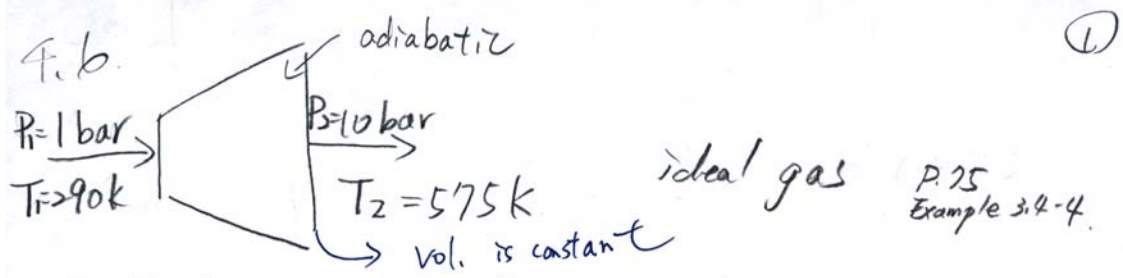 4.6.
adiabatic
①
P₁=1 bar
P₂=10 bar
T₁=290k
T₂=575k
ideal gas
P.75
Example 3.4-4.
vol. is constant